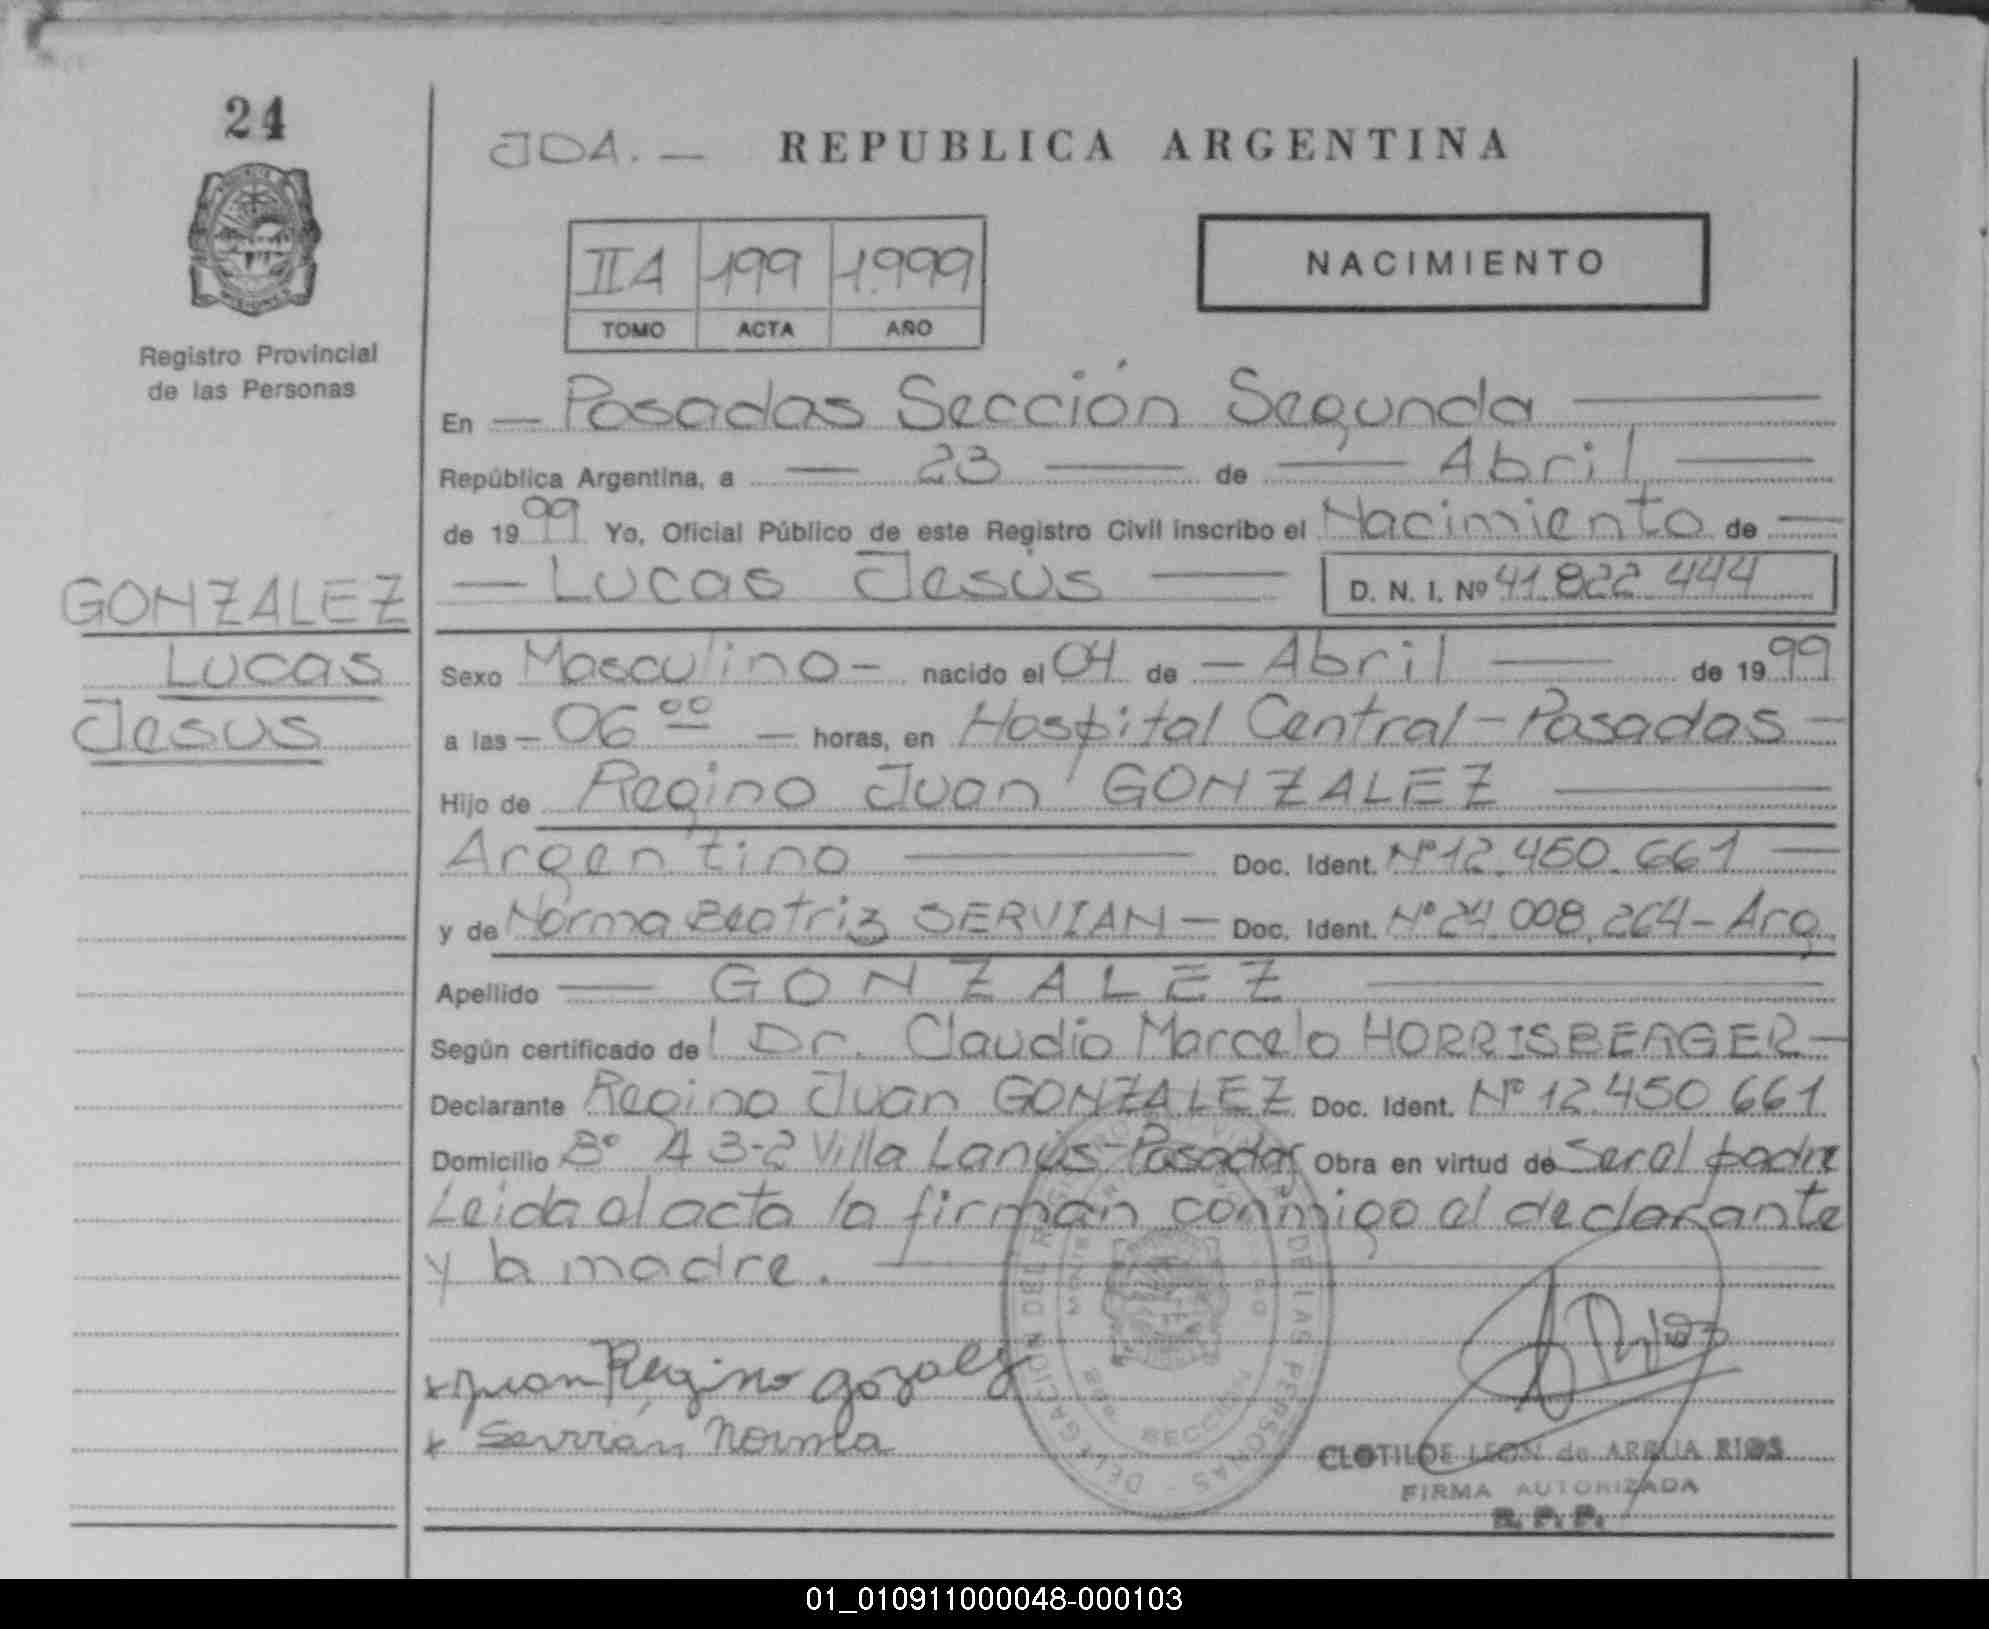 24
Registro Provincial
de las Personas
GONZALEZ
Lucas
Jesus
JDA. —
REPUBLICA ARGENTINA
IIA 199 1.999
TOMO ACTA AÑO
NACIMIENTO
En — Posadas Sección Segunda —
República Argentina, a — 23 — de — Abril —
de 1999 Yo, Oficial Público de este Registro Civil inscribo el Nacimiento de —
— Lucas Jesús — D. N. I. Nº 41.822.444
Sexo Masculino — nacido el 04 de — Abril — de 1999
a las — 06 00 — horas, en Hospital Central - Posadas —
Hijo de Regino Juan GONZALEZ —
Argentino — Doc. Ident. Nº 12.450.661 —
y de Norma Beatriz SERVIAN — Doc. Ident. Nº 24.008.264 - Arg.
Apellido — GONZALEZ —
Según certificado de Dr. Claudio Marcelo HORRISBERGER —
Declarante Regino Juan GONZALEZ Doc. Ident. Nº 12.450.661
Domicilio Bº A 3-2 Villa Lanús - Posadas Obra en virtud de Ser el padre
Leida el acta la firman conmigo el declarante
y la madre. —
x Juan Regino gozalez
x Servián Norma
DELEGACION DEL REGISTRO PROVINCIAL DE LAS PERSONAS
CLOTILDE LEON de ARRUA RIOS
FIRMA AUTORIZADA
R. P. P.
01_010911000048-000103